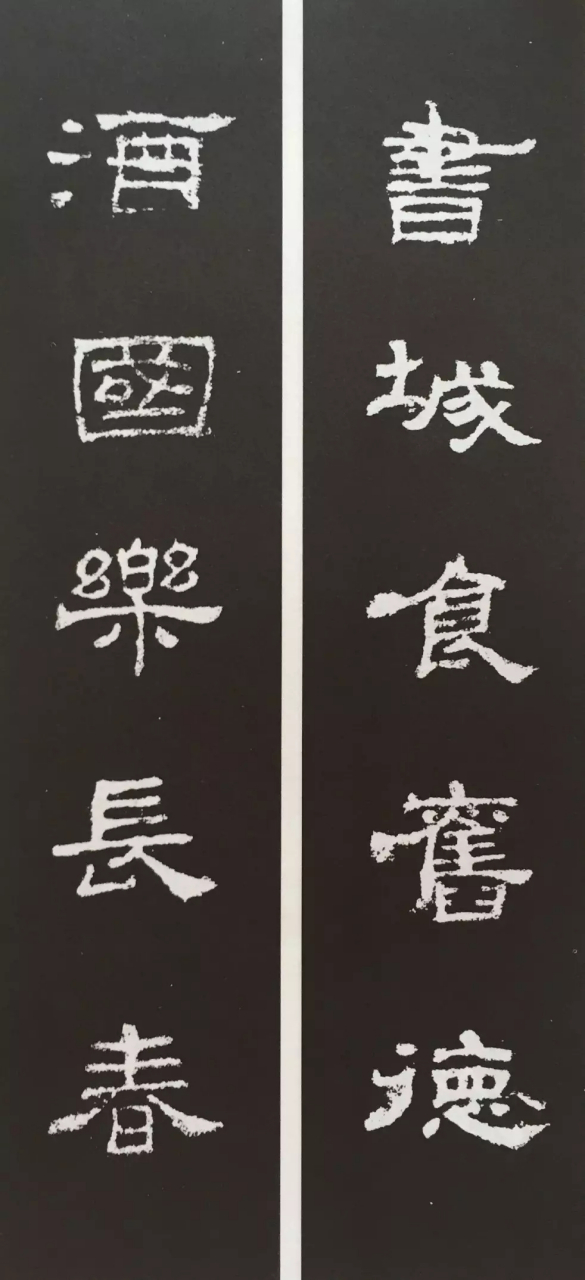 書城食舊德
酒國樂長春